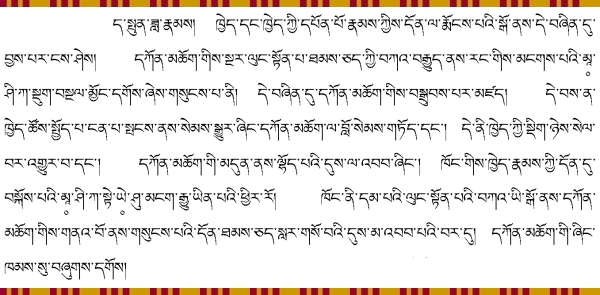 ད་སྤུན་ཟླ་རྣམས། ཁྱེད་དང་ཁྱེད་ཀྱི་དཔོན་པོ་རྣམས་ཀྱིས་དོན་ལ་རྨོངས་པའི་སྒོ་ནས་དེ་བཞིན་དུ་
བྱས་པར་ངས་ཤེས། དཀོན་མཆོག་གིས་སྔར་ལུང་སྟོན་པ་ཐམས་ཅད་ཀྱི་བཀའ་བརྒྱུད་ནས་རང་གིས་མངགས་པའི་མཱ་
ཤི་ཀ་སྡུག་བསྔལ་མྱོང་དགོས་ཞེས་གསུངས་པ་ནི། དེ་བཞིན་དུ་དཀོན་མཆོག་གིས་བསྒྲུབས་པར་མཛད། དེ་བས་ན་
ཁྱེད་ཚོས་སྤྱོད་པ་ངན་པ་སྤངས་ནས་སེམས་སྒྱུར་ཞིང་དཀོན་མཆོག་ལ་བློ་སེམས་གཏོད་དང་། དེ་ནི་ཁྱེད་ཀྱི་སྡིག་ཉེས་སེལ་
བར་འགྱུར་བ་དང་། དཀོན་མཆོག་གི་མདུན་ནས་ལྷོད་པའི་དུས་ལ་འབབ་ཞིང་། ཁོང་གིས་ཁྱེད་རྣམས་ཀྱི་དོན་དུ་
བསྐོས་པའི་མཱ་ཤི་ཀ་སྟེ་ཡེ་ཤུ་མངག་རྒྱུ་ཡིན་པའི་ཕྱིར་རོ། ཁོང་ནི་དམ་པའི་ལུང་སྟོན་པའི་བཀའ་ཡི་སྒོ་ནས་དཀོན་
མཆོག་གིས་གནའ་བོ་ནས་གསུངས་པའི་དོན་ཐམས་ཅད་སླར་གསོ་བའི་དུས་མ་འབབ་པའི་བར་དུ། དཀོན་མཆོག་གི་ཞིང་
ཁམས་སུ་བཞུགས་དགོས།